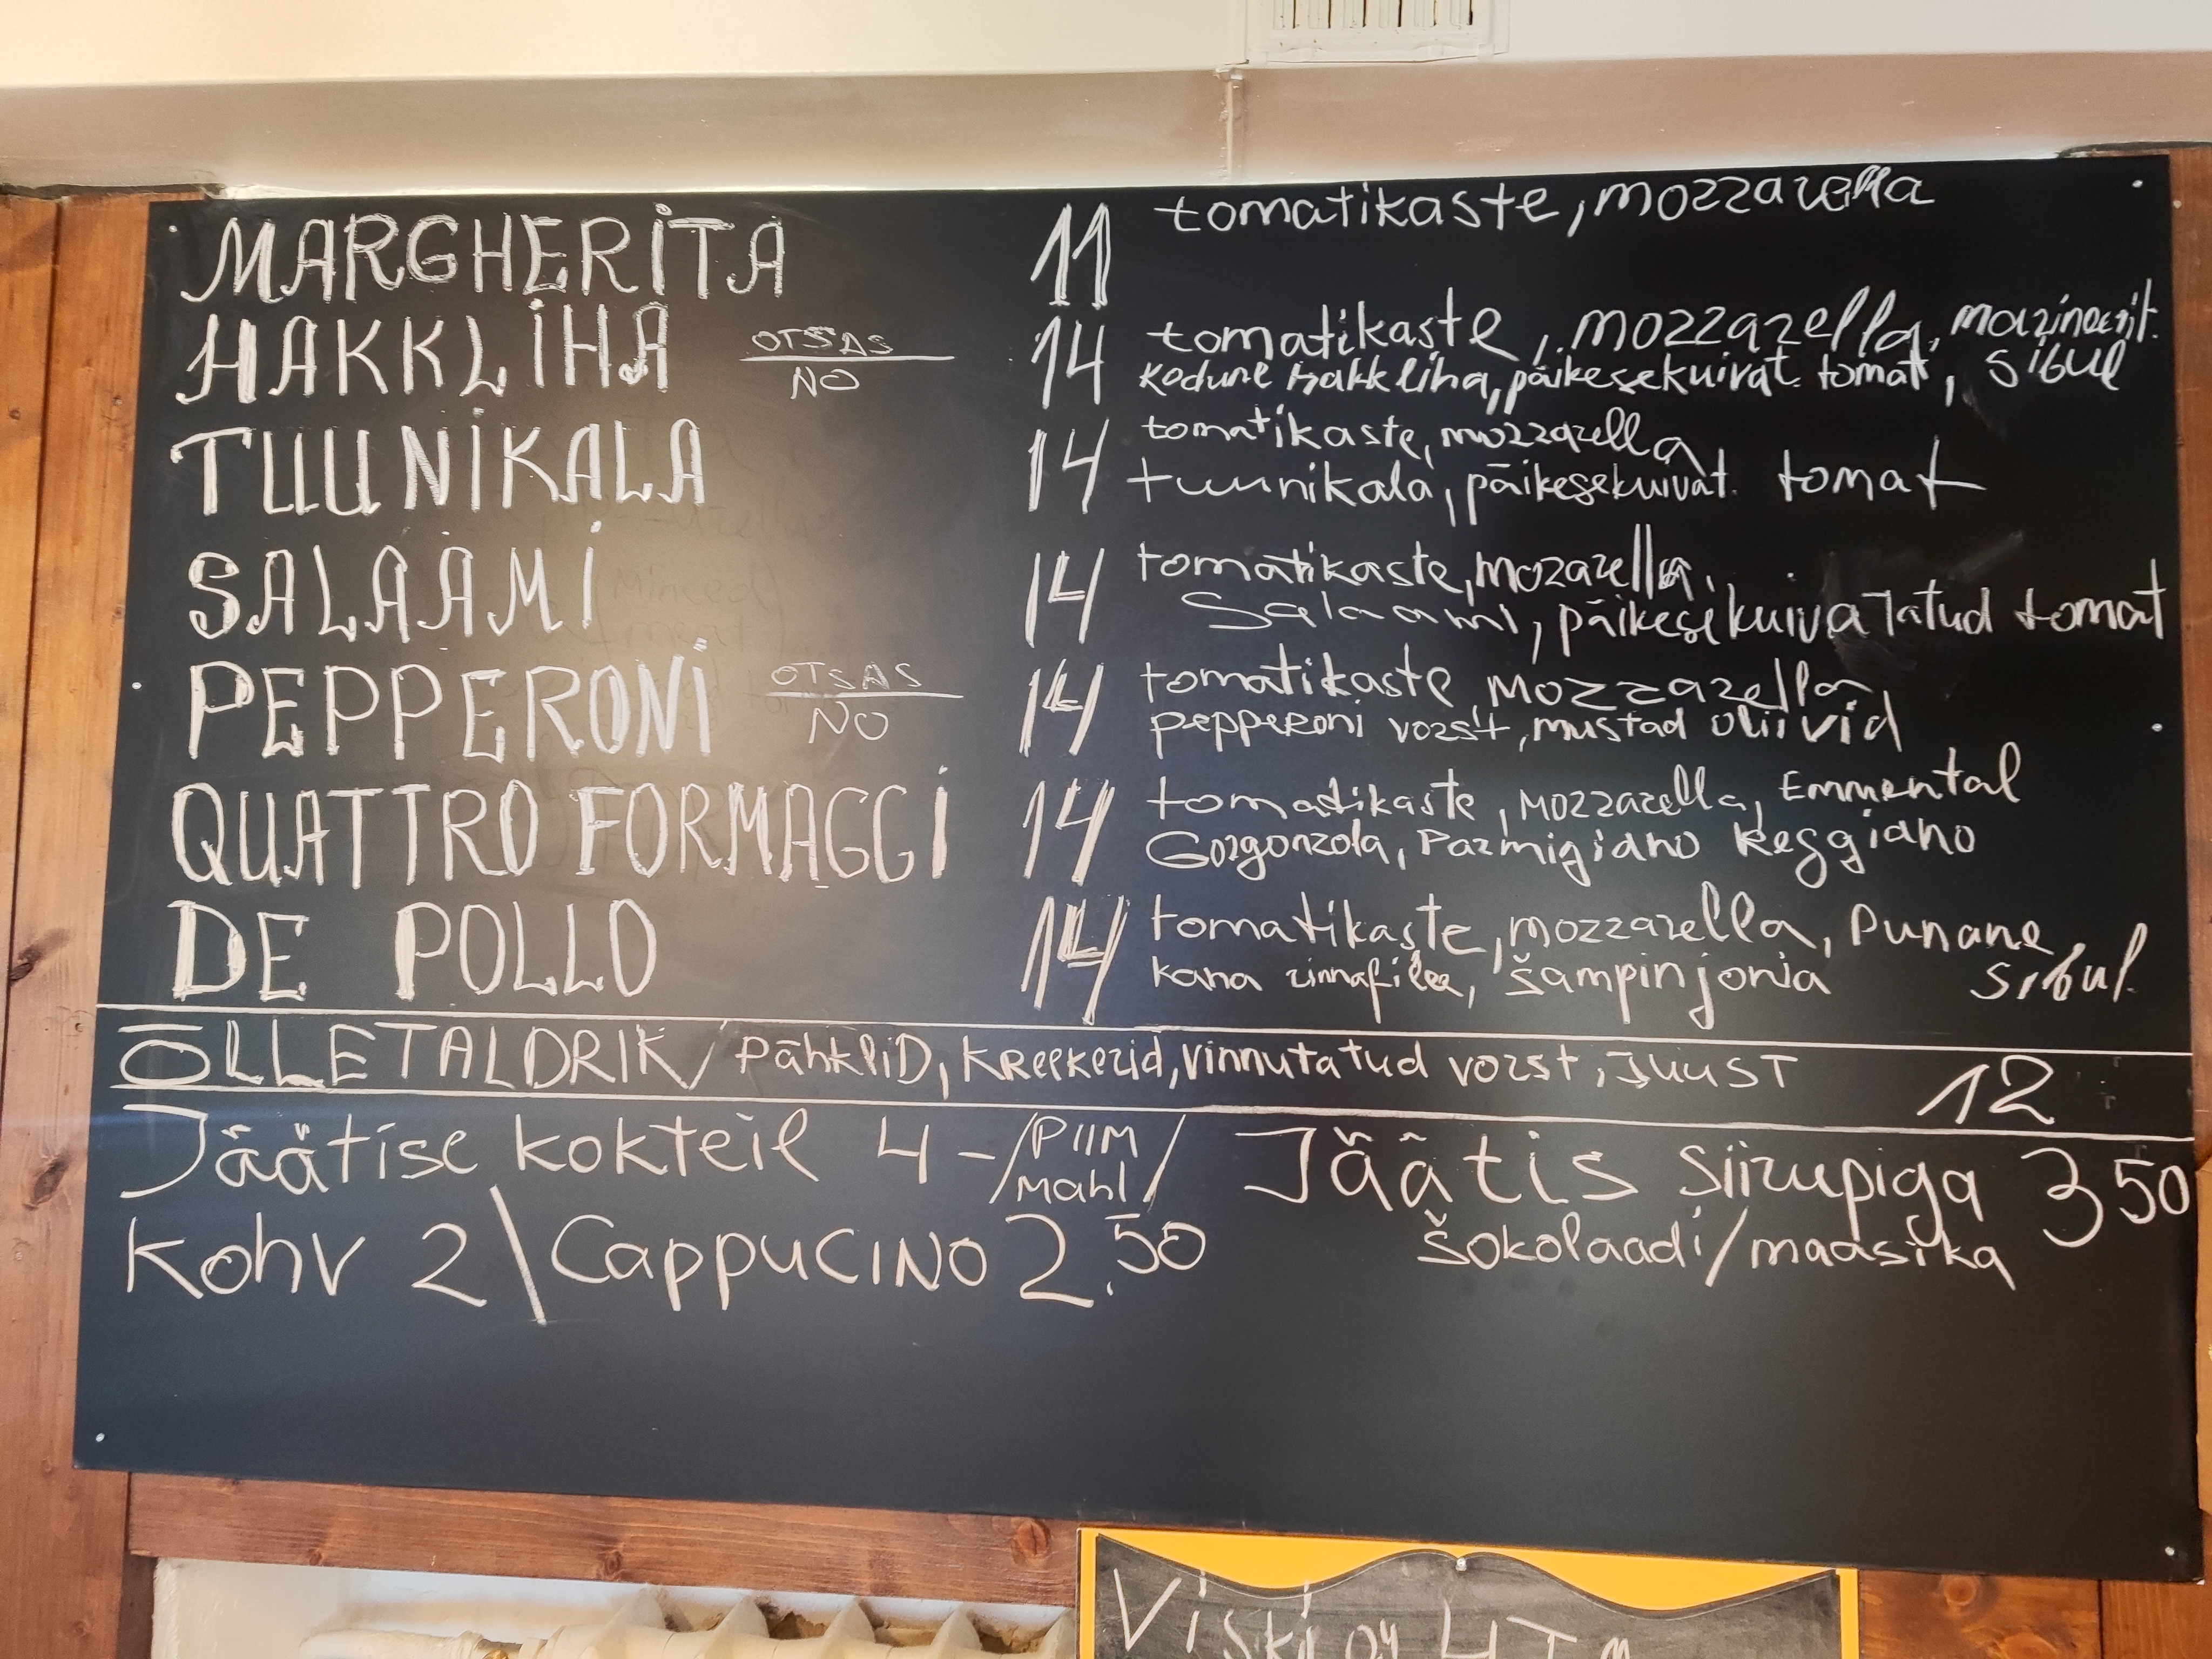 MARGHERITA 11 tomatikaste, mozzarella
HAKKLIHA OTSAS NO 14 tomatikaste, mozzarella, marineerit.
kodune hakkliha, päikesekuivat. tomat, sibul
TUUNIKALA 14 tomatikaste, mozzarella
tuunikala, päikesekuivat. tomat
SALAAMI 14 tomatikaste, mozarella,
Salaami, päikesekuivatatud tomat
PEPPERONI OTSAS NO 14 tomatikaste mozzarella,
pepperoni vorst, mustad oliivid
QUATTRO FORMAGGI 14 tomatikaste, mozzarella, Emmental
Gorgonzola, Parmigiano Reggiano
DE POLLO 14 tomatikaste, mozzarella, punane
kana rinnafilee, šampinjonia sibul.
ÕLLETALDRIK / PÄHKLID, KREEKERID, vinnutatud vorst, JUUST 12
Jäätise kokteil 4 - / PIIM Mahl / Jäätis siirupiga 3 50
šokolaadi/maasika
Kohv 2 \ Cappucino 2.50
Viski